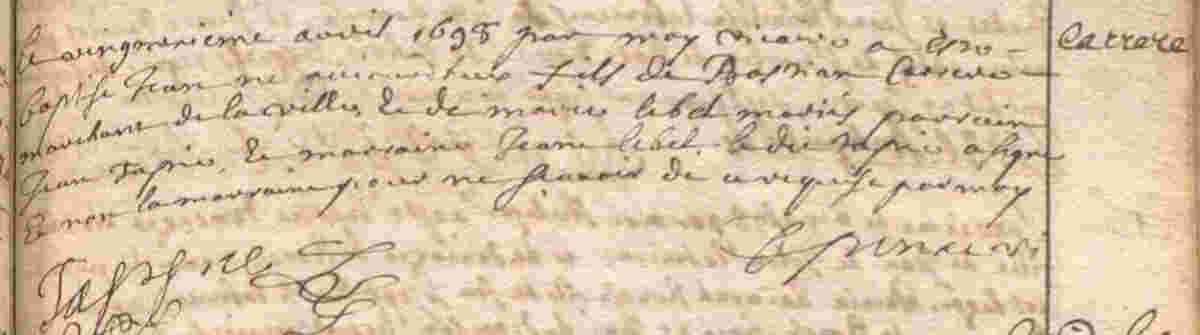 le vingtneufieme avril 1698 par moy vicaire a esté Carrere
baptise Jean né aujourdhuy fils de Bastian Carrere
marchant de la ville et de marie libet mariés parrein
Jean Tapie et marraine Jeane libet ledit tapie a signé
et non la marraine pour ne scavoir de ce requise par moy